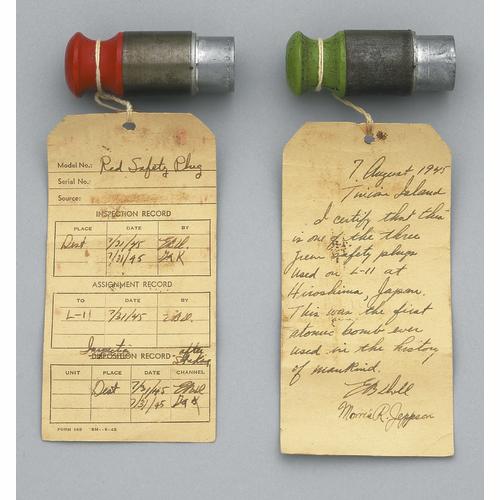 Model No.: Red Safety Plug
Serial No.
Source:
INSPECTION RECORD
PLACE DATE BY
Dest 7/21/45
7/21/45
ASSIGNMENT RECORD
TO DATE BY
L-11 7/21/45
after
RECORD
UNIT PLACE DATE CHANNEL
Dest 7/31/45
7/31/45
FORM
7 August 1945
Tinian Island
I certify that this
is one of the three
green safety plugs
used on L-11 at
Hiroshima, Japan.
This was the first
atomic bomb ever
used in the history
of mankind.
Morris R. Jeppson